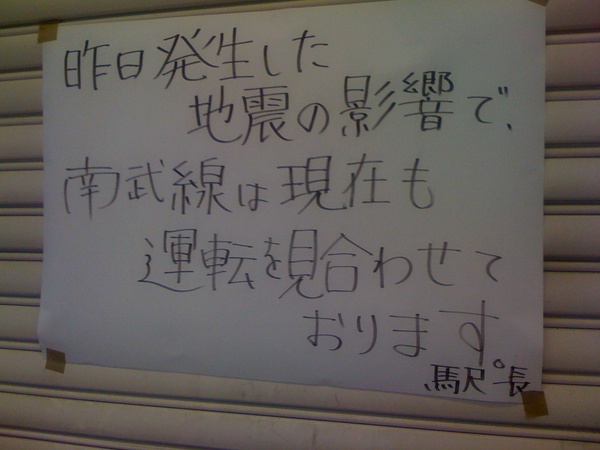 昨日発生した
地震の影響で、
南武線は現在も
運転を見合わせて
おります。
駅長